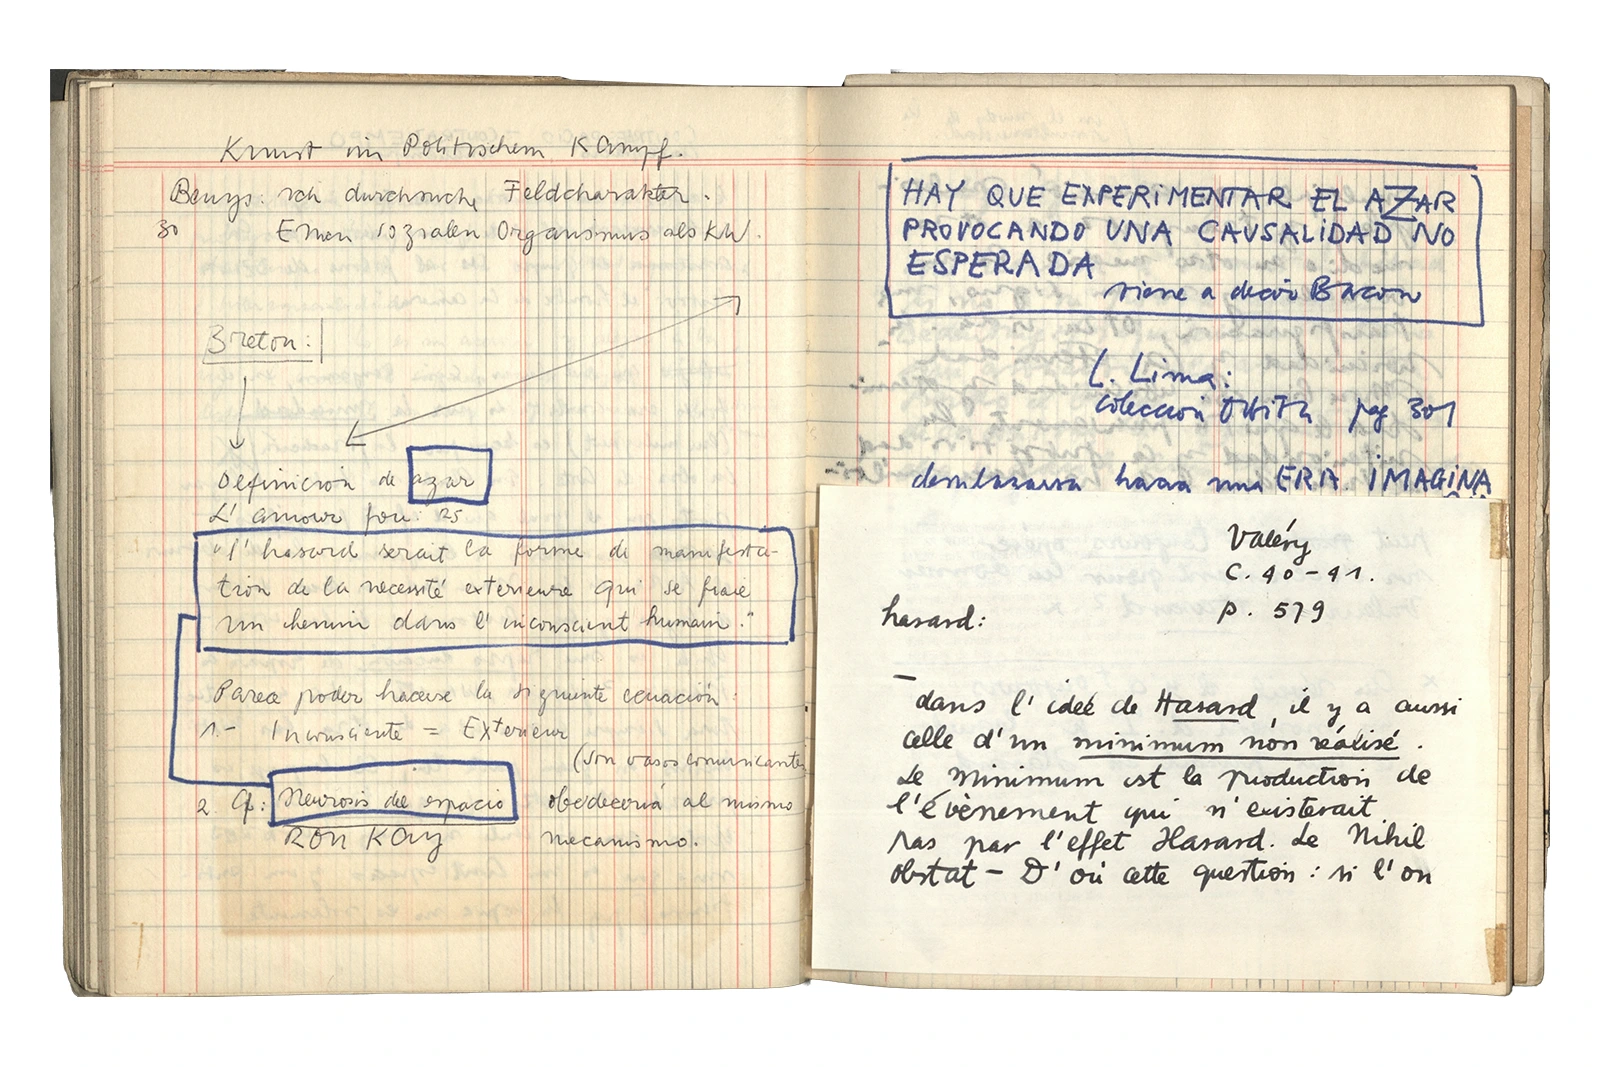 Kunst im Politischem Kampf.
Beuys: ich durchsuche Feldcharakter.
30 Einen sozialen Organismus als KW.
Breton:
Definición de azar
L'amour fou: 25
"l'hasard serait la forme de manifesta-
tion de la necessité exterieure qui se fraie
un chemin dans l'inconscient humain."
Parece poder hacerse la siguiente ecuación:
1.- Inconsciente = Exterieur
(son vasos comunicantes
2. Cf: Neurosis de espacio obedecería al mismo
RON KAY mecanismo.
HAY QUE EXPERIMENTAR EL AZAR
PROVOCANDO UNA CAUSALIDAD NO
ESPERADA
viene a decir Bacon
L. Lima:
Colección Orbita pag 301
hacia una ERA IMAGINA
Valéry
C. 40-41.
p. 579
hasard:
– dans l'ideé de Hasard, il y a aussi
celle d'un minimum non réalisé.
Le Minimum est la production de
l'évènement qui n'existerait
pas par l'effet Hasard. Le Nihil
obstat – D'où cette question: si l'on